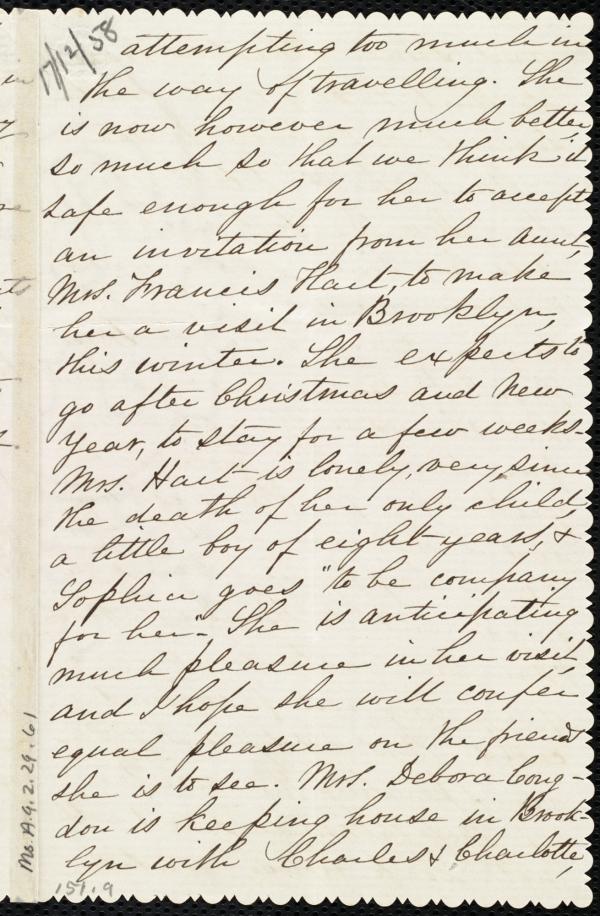 17/12/58
attempting too much in
the way of travelling. She
is now however much better,
so much so that we think it
safe enough for her to accept
an invitation from her aunt,
Mrs. Francis Hart, to make
her a visit in Brooklyn,
this winter. She expects to
go after Christmas and New
Year, to stay for a few weeks.
Mrs. Hart is lonely, very, since
the death of her only child,
a little boy of eight years, &
Sophia goes "to be company
for her". She is anticipating
much pleasure in her visit,
and I hope she will confer
equal pleasure on the friend
she is to see. Mrs. Debora Cong-
don is keeping house in Brook-
lyn with Charles & Charlotte,
Ms. A. 9. 2. 29. 61
151.9